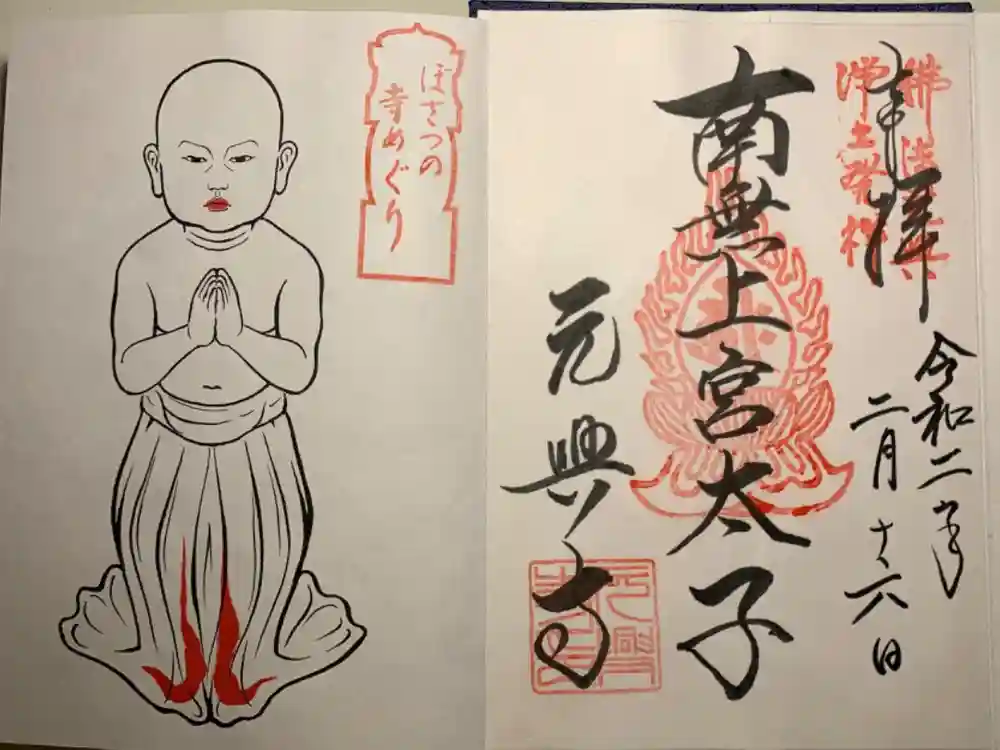 佛法元興
浄土発祥
奉拝
令和二年
二月十六日
南無上宮太子
元興寺
ぼさつの
寺めぐり